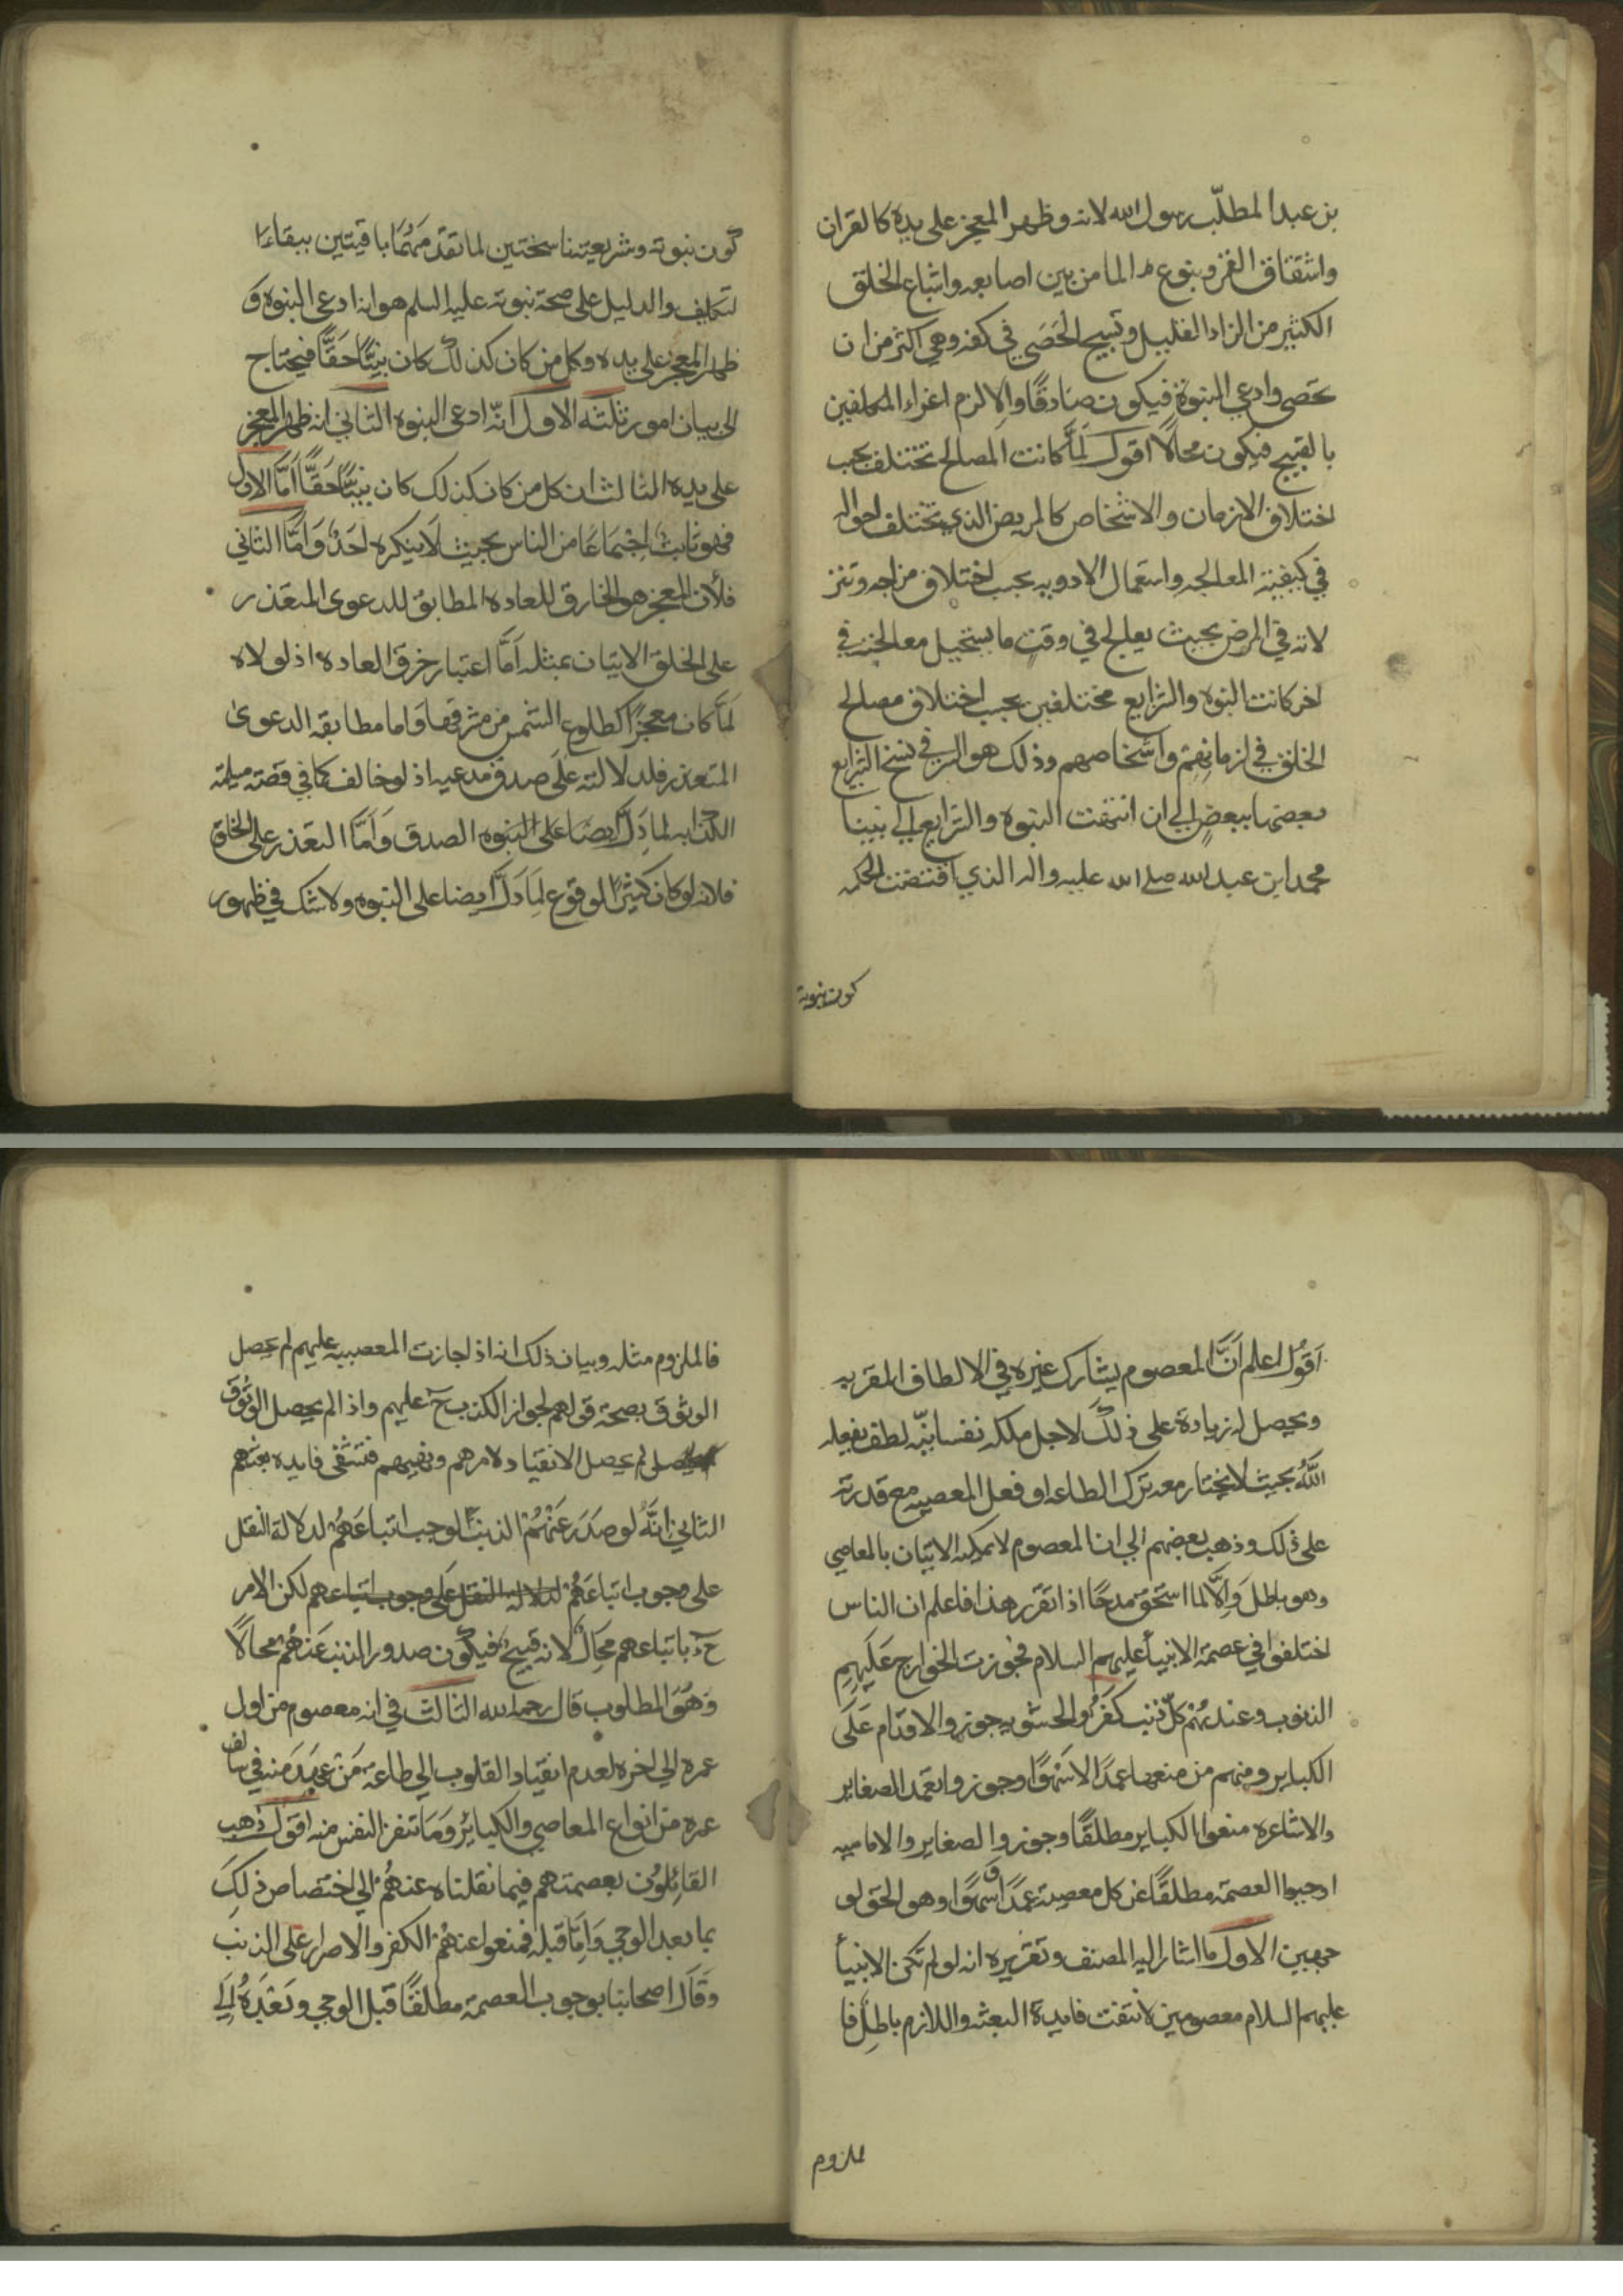 بن عبد المطلّب رسول الله لانه وظهر المعجز على يده كالقران
وانشقاق القمر وبنوع الما من بين اصابعه واشباع الخلق
الكثير من الزاد القليل وتسبيح الحَصَى في كفه وهي اكثر من ان
تحصى وادعى النبوة فيكون صَادقًا والا لزم اغراء المكلفين
بالقبيح فيكون محالًا اقول لمَّا كانت المصالح تختلف بحسب
اختلاف الازمان والاشخاص كالمريض الذي تختلف احواله
في كيفية المعالجه واستعمال الادويه بحسب اختلاف مزاجه وتنز
لاته في المرض بحيث يعالج في وقتٍ ما يستحيل معالجته في
اخر كانت النبوه والشرايع مختلفين بحسب اختلاف مصالح
الخلق في ازمانهم واشخاصهم وذلك هو السر في نسخ الشرايع
بعضها ببعضٍ الى ان انتهت النبوه والشرايع الى نبينا
محمد ابن عبد الله صلى الله عليه واله الذي اقتضت الحكمه
كون نبوته
كون نبوته وشريعته ناسختين لما تقدّمَهُمَا باقيتين ببقاء
التكليف والدليل على صحة نبوته عليه السلم هو انه ادعى النبوه و
ظهر المعجز على يده وكل من كان كذلك كان نبيًّا حَقًّا فيحتاج
الى بيان امور ثلثه الاول انّه ادعى النبوه الثاني انه ظهر المعجز
على يده الثالث ان كل من كان كذلك كان نبيًّا حَقًّا اَمَّا الاول
فهو ثابت اِجْمَاعًا من الناس بحيث لَا ينكره اَحَدٌ وَاَمَّا الثاني
فلأن المعجز هو الخارق للعاده المطابق للدعوى المتعَذر
على الخلق الاتيان بمثله اَمَّا اعتبار خرق العاده اذ لولاه
لَمَّا كان معجزًا كطلوع الشمس من مشرقها وَاما مطابقه الدعوى
المتعذر فلدلالته عَلَى صدق مدعيه اذ لو خالف كما في قصة مسيلمة
الكذاب لما دَلَّ ايضا على النبوه الصدق وَاَمَّا التعَذر على الخلق
فلانه لو كان كثيرًا لوقوع لمَا دَلَّ ايضا على النبوه ولا شك في ظهور
اَقُول اعلم اَنَّ المعصوم يشارك غيره في الالطاف المقربه
ويحصل له زيادة على ذلك لاجل ملكه نفسانيّه لطف يفعله
اللَّهُ بحيث لا يختار معه ترك الطاعه او فعل المعصيه مع قدرته
على ذلك وذهب بعضهم الى ان المعصوم لا يمكنه الاتيان بالمعاصي
وهو باطل وَالَّا لما استحَقّ مَدحًا اذا تقرر هذا فاعلم ان الناس
اختلفوا في عصمة الانبيأ عليهم السلام فجوزت الخوارج عَلَيهِم
الذنوب وعندهُمْ كلّ ذنب كفرٌ والحشويه جوزو الاقدام عَلَى
الكباير ومنهم من منعها عمدًا لا سَهْوًا وجوزوا تعمد الصغاير
والاشاعره منعوا الكباير مطلقًا وجوزوا الصغاير والاماميه
اوجبوا العصمة مطلقًا عن كل معصية عمدًا و سهوًا وهو الحَق لو
جهين الاول ما اشار اليه المصنف وتقريره انه لو لم تكن الانبيأ
عليهم السلام معصومين لانتفت فايدة البعثه واللازم باطل فا
لملزوم
فالملزوم مثله وبيان ذلك انه اذ اجازت المعصيه عليهم لم يحصل
الوثوق بصحة قولهم لجواز الكذب ح عليهم واذا لم يحصل الوُثوق
لم يحصل الانقياد لامرهم ونهيهم فتنتفي فايده بعثهم
الثاني انَّهُ لو صَدَرَ عَنْهُمْ الذنبْ لوجب اتباعَهُمْ لدلالة النقل
على وجوب اتباعَهُمْ لدلاله النقل عَلَى وجوب اتباعهم لكن الامر
ح باتباعهم محِالٌ لانه قبيح فيكون صدور الذنب عَنهُمْ محالًا
وَهُوَ المطلوب قال رحمه الله الثالث في انه معصوم من اول
عمره الى اخره لعدم انقياد القلوب الى طاعة مَنْ عهِدَ منه في سالف
عمره من انواع المعاصي والكبائر وَمَا تنفر النفس منه اقول ذهب
القائِلُون بعصمتهم فيما نقلناه عنهُمْ الى اختصاص ذلِكَ
بما بعد الوحي وَامَّا قبله فمنعوا عنهُمْ الكفر والاصرار على الذنب
وَقَالَ اصحابنا بوجوب العصمة مطلقًا قبل الوحي وَبَعْدَهُ الى